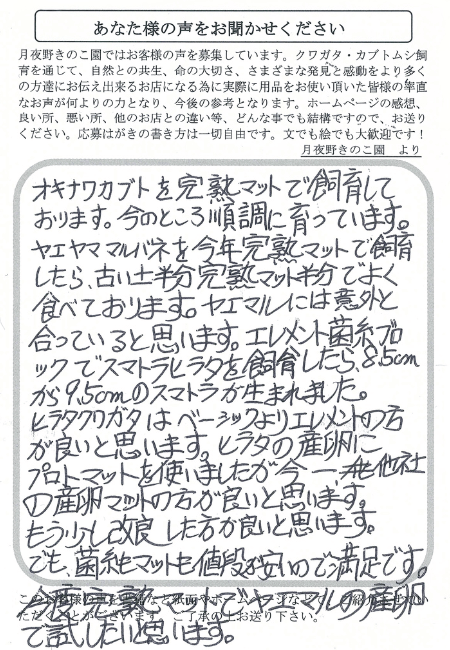 あなた様の声をお聞かせください
月夜野きのこ園ではお客様の声を募集しています。クワガタ・カブトムシ飼
育を通じて、自然との共生、命の大切さ、さまざまな発見と感動をより多く
の方達にお伝え出来るお店になる為に実際に用品をお使い頂いた皆様の率直
なお声が何よりの力となり、今後の参考となります。ホームページの感想、
良い所、悪い所、他のお店との違い等、どんな事でも結構ですので、お送り
ください。応募はがきの書き方は一切自由です。文でも絵でも大歓迎です！
月夜野きのこ園　より
オキナワカブトを完熟マットで飼育して
おります。今のところ順調に育っています。
ヤエヤママルバネを今年完熟マットで飼育
したら、古い土半分完熟マット半分でよく
食べております。ヤエマルには意外と
合っていると思います。エレメント菌糸ブロ
ックでスマトラヒラタを飼育したら、8,5cm
が9,5cmのスマトラが生まれました。
ヒラタクワガタはベーシックよりエレメントの方
が良いと思います。ヒラタの産卵に
プロトマットを使いましたが今一、他社
の産卵マットの方が良いと思います。
もう少し改良した方が良いと思います。
でも、菌糸もマットも値段が安いので満足です。
この　　　様の声を　　など紙面やホームページなどで、ご紹介させてい
ただくことがございます。ご了承の上お送り下さい。
今度完熟マットでヤエマルの産卵
で試したいと思います。